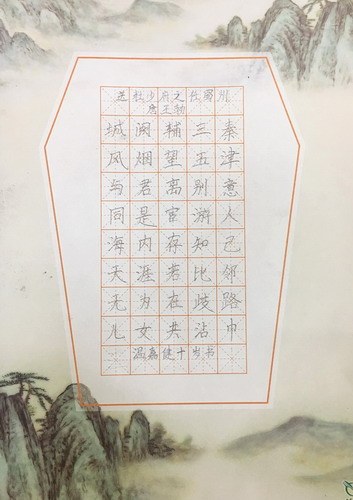 送杜少府之任蜀州
唐王勃
城阙辅三秦
风烟望五津
与君离别意
同是宦游人
海内存知己
天涯若比邻
无为在歧路
儿女共沾巾
温嘉健十岁书